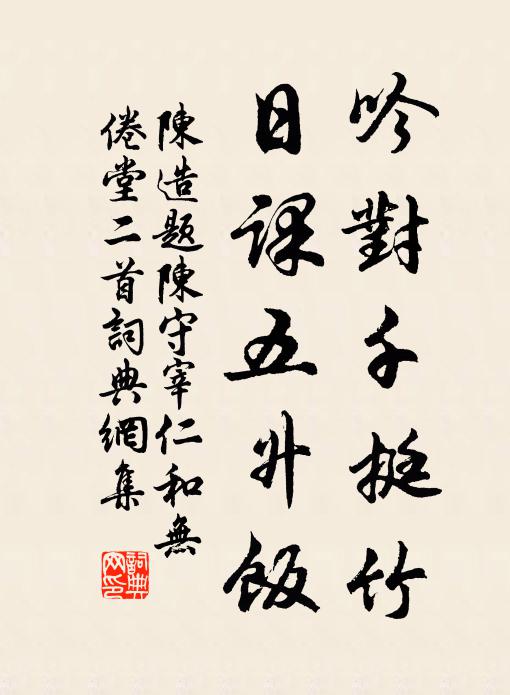 吟對千挺竹
日課五升飯
陳造題陳守宰仁和無
倦堂二首詞典網集
詞典
网印